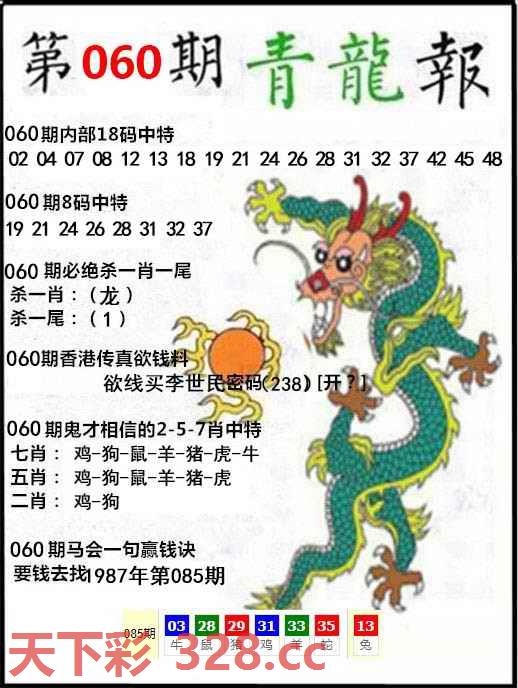 第060期青龍報
060期内部18码中特
02 04 07 08 12 13 18 19 21 24 26 28 31 32 37 42 45 48
060期8码中特
19 21 24 26 28 31 32 37
060期必绝杀一肖一尾
杀一肖：（龙）
杀一尾：（1）
060期香港传真欲钱料
欲线买李世民密码(238)[开？]
060期鬼才相信的2-5-7肖中特
七肖：鸡-狗-鼠-羊-猪-虎-牛
五肖：鸡-狗-鼠-羊-猪-虎
二肖：鸡-狗
060期马会一句赢钱诀
要钱去找1987年第085期
085期 03 28 29 31 33 35 13
牛 鼠 猪 鸡 羊 蛇 兔
天下彩 328.cc